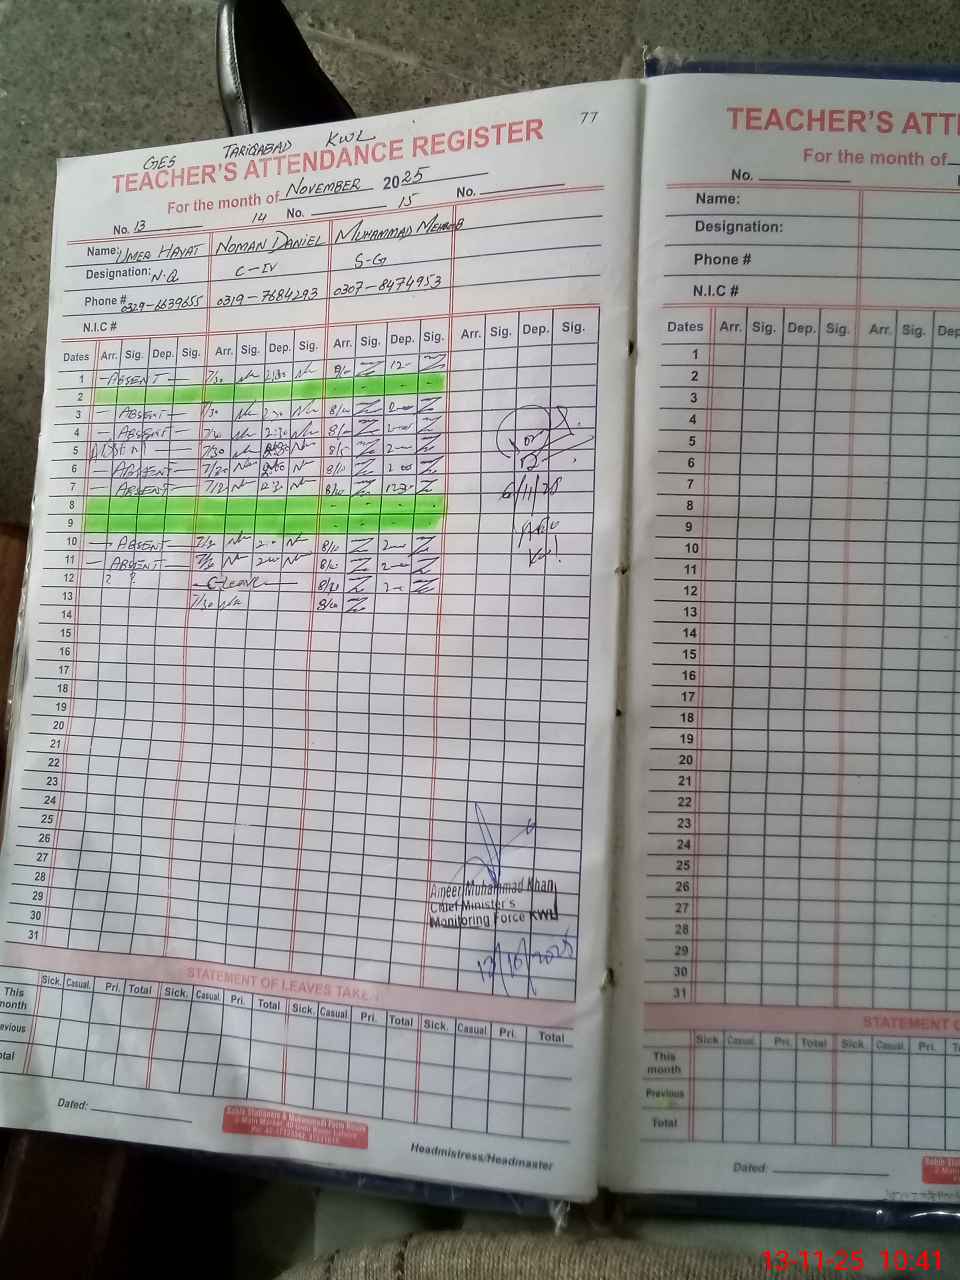 77
GES TARIQABAD KWL
TEACHER'S ATTENDANCE REGISTER
For the month of NOVEMBER 2025
No. 13 14 No. 15 No.
Name: UMER HAYAT NOMAN DANIEL MUHAMMAD
Designation: N.Q C-IV S-G
Phone # 0329-6639655 0319-7684293 0307-8474953
N.I.C #
Dates Arr. Sig. Dep. Sig. Arr. Sig. Dep. Sig. Arr. Sig. Dep. Sig. Arr. Sig. Dep. Sig.
1 ABSENT 7/30 2:30 8/10 12
2
3 ABSENT 7/30 2:30 8/10 2
4 ABSENT 7/30 2:30 8/10 2
5 ABSENT 7/30 8/15 2
6 ABSENT 7/30 8/10 2
7 ABSENT 8/10 1230
8
9
10 ABSENT 7/30 8/10 2
11 ABSENT 7/30 8/10 2
12 ? ? C-leave 8/10 2
13 7/30 8/10
14
15
16
17
18
19
20
21
22
23
24
25
26
27
28
29
30
31
6/11/25
Ameer Muhammad Khan
Chief Minister's
Monitoring Force KWL
13/10/2025
STATEMENT OF LEAVES TAKE
Sick. Casual. Pri. Total Sick. Casual. Pri. Total Sick. Casual. Pri. Total Sick. Casual Pri. Total
This month
evious
otal
Dated:
Headmistress/Headmaster
TEACHER'S ATTE
For the month of
No.
Name:
Designation:
Phone #
N.I.C #
Dates Arr. Sig. Dep. Sig. Arr. Sig. Dep
1
2
3
4
5
6
7
8
9
10
11
12
13
14
15
16
17
18
19
20
21
22
23
24
25
26
27
28
29
30
31
STATEMENT O
Sick Casual. Pri. Total Sick. Casual. Pri. T
This month
Previous
Total
Dated:
13-11-25 10:41